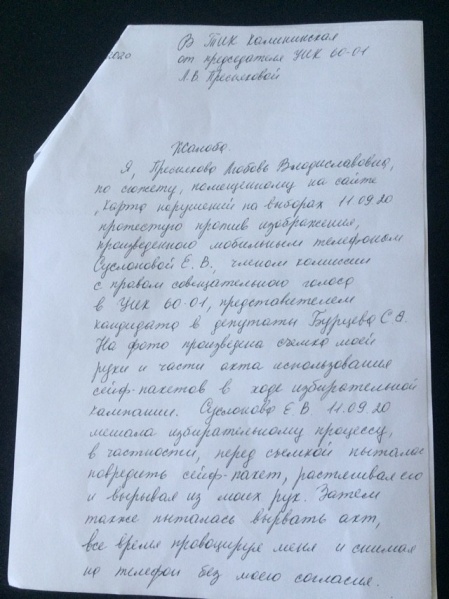 В ТИК Калининская
2020 от председателя УИК 60-01
Л.В. Пресняковой
Жалоба.
Я, Любовь Владиславовна,
по сюжету, помещенному на сайте
"Карта нарушений на выборах 11.09.20
протестую против изображения,
произведенного мобильным телефоном
Суслоновой Е.В., членом комиссии
с правом совещательного голоса
в УИК 60-01, представителем
кандидата в депутаты Бурцева С.Я.
На фото произведена съемка моей
руки и части акта использования
сейф-пакетов в ходе избирательной
кампании. Суслонова Е.В. 11.09.20
мешала избирательному процессу,
в частности, перед съемкой пыталась
повредить сейф-пакет, растягивая его
и вырывая из моих рук. Затем
также пыталась вырвать акт,
все время провоцируя меня и снимая
на телефон без моего согласия.